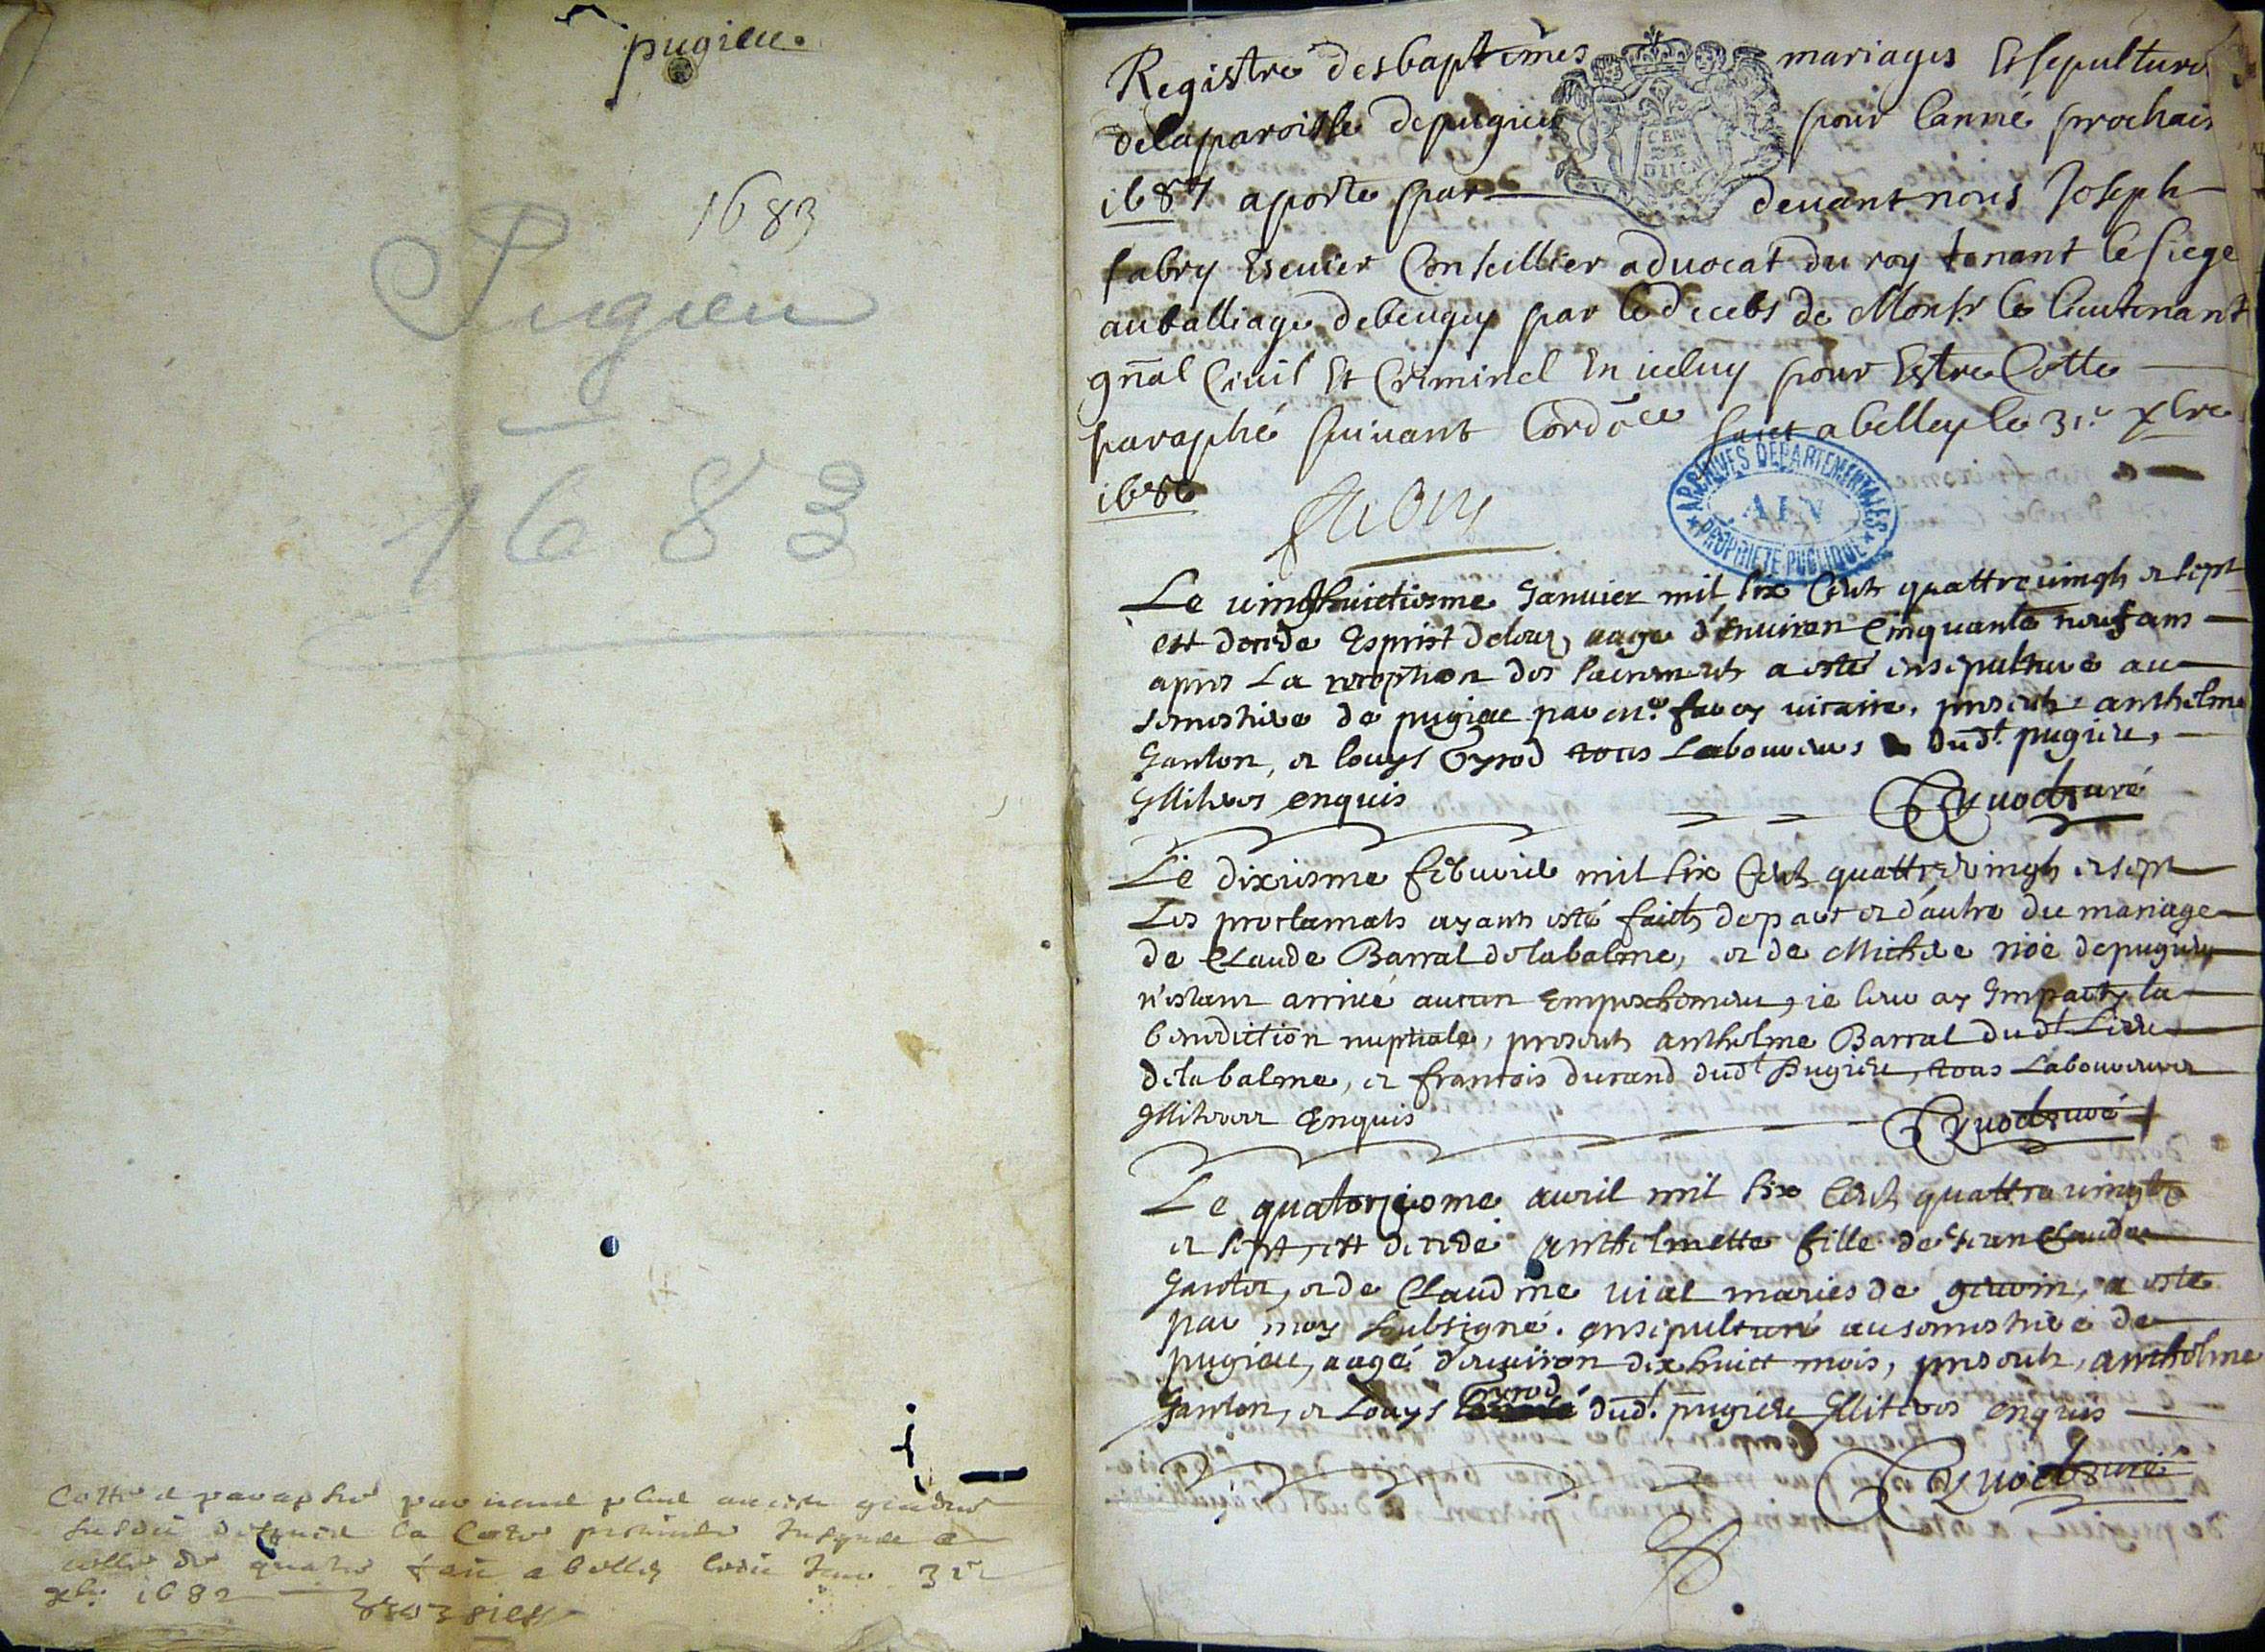 pugieu.
1683
Pugieu
1683
Cotté et paraphé par nous plus ancien gradué
susdit depuis la Cotte premiere jusques a
celle de quatre fait a belley ledit jour 31e
xbre 1682
Registre des baptemes mariages Et sepulture
de la paroisse de pugieu pour lanné prochain
1687 aporte par devant nous Joseph
fabry Escuier Conseillier advocat du roy tenant le siege
au balliage de beugey par le deceds de Monsr le lieutenant
gnãl Civil Et Criminel En iceluy pour Estre Cotte
paraphé suivant lordõce fait a belley le 31e xbre
1686
fabry
ARCHIVES DEPARTEMENTALES
AIN
PROPRIETE PUBLIQUE
Le vingthuictiesme Janvier mil six Cents quattrevingts et sept
est decede Esprist deloux, aage d'Environ Cinquante neuf ans
apres La reception des sacrements a esté ensepulturé au
semestiere de pugieu par mre favox vicaire, presents anthelme
Janton, et louys Gyrod tous Laboureurs dudt pugieu,
Illiteres enquis
curé
Le dixiesme febvrier mil six Cents quattre vingts et sept
Les proclamats ayants esté faicts de part et d'autre du mariage
de Claude Barral de la balme, et de Michere nioé de pugieu
n'estant arrivé aucun Empeschement, ie leur ay Imparty la
benediction nuptiale, presents anthelme Barral dudt Lieu
de la balme, et francois durand dudt Pugieu, tous Laboureurs
Illiteres Enquis
curé
Le quatorziesme avril mil six Cents quattre vingts
et sept, est decedé anthelmette fille de Jean Claude
Janton, et de Claudine vial maries de, a esté
par moy soubsigné. ensepulturé au semestiere de
pugieu, aagé d'environ dix huict mois, presents, anthelme
Janton, et Louys Gyrod dudt. pugieu Illiteres enquis
curé